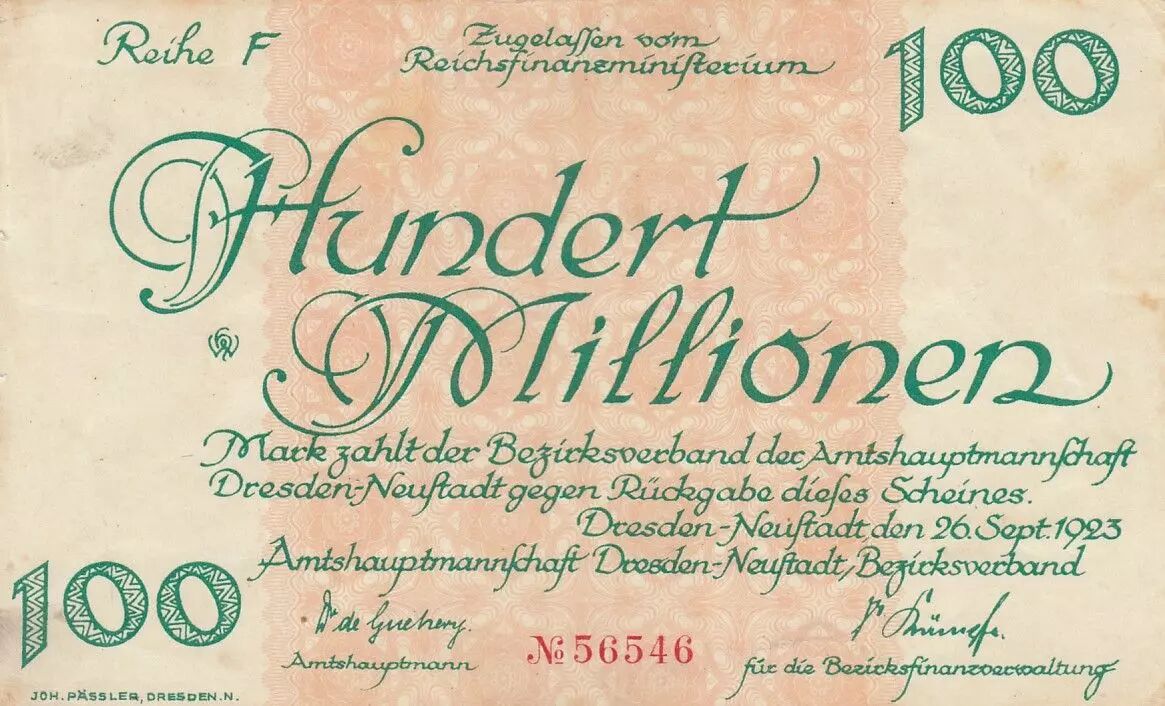 Reihe F
Zugelaſſen vom
Reichsfinanzminiſterium
100
Hundert
Millionen
Mark zahlt der Bezirksverband der Amtshauptmannſchaft
Dresden-Neuſtadt gegen Rückgabe dieſes Scheines.
Dresden-Neuſtadt, den 26. Sept. 1923
Amtshauptmannſchaft Dresden-Neuſtadt, Bezirksverband
100
Dr de Guehery.
Amtshauptmann
№ 56546
für die Bezirksfinanzverwaltung
JOH. PÄSSLER, DRESDEN.N.